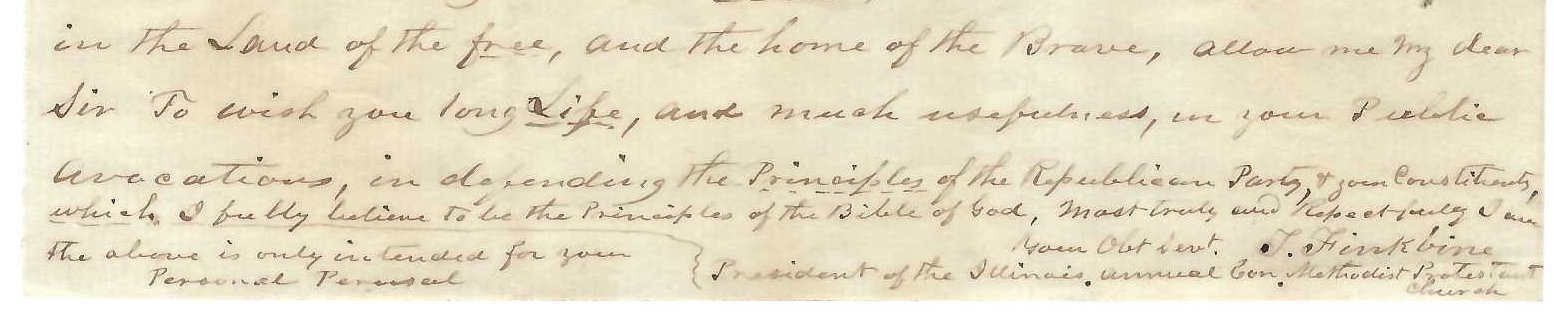 in the Land of the free, and the home of the Brave, allow me My dear
Sir To wish you long Life, and much usefulness, in your Public
Avocations, in defending the Principles of the Republican Party, & your Constituents,
which I fully believe to be the Principles of the Bible of God, Most truly and Respectfully I am
Your Obt Servt. J. Finkbine
President of the Illinois annual Con. Methodist Protestant
Church
the above is only intended for your
Personal Perusal